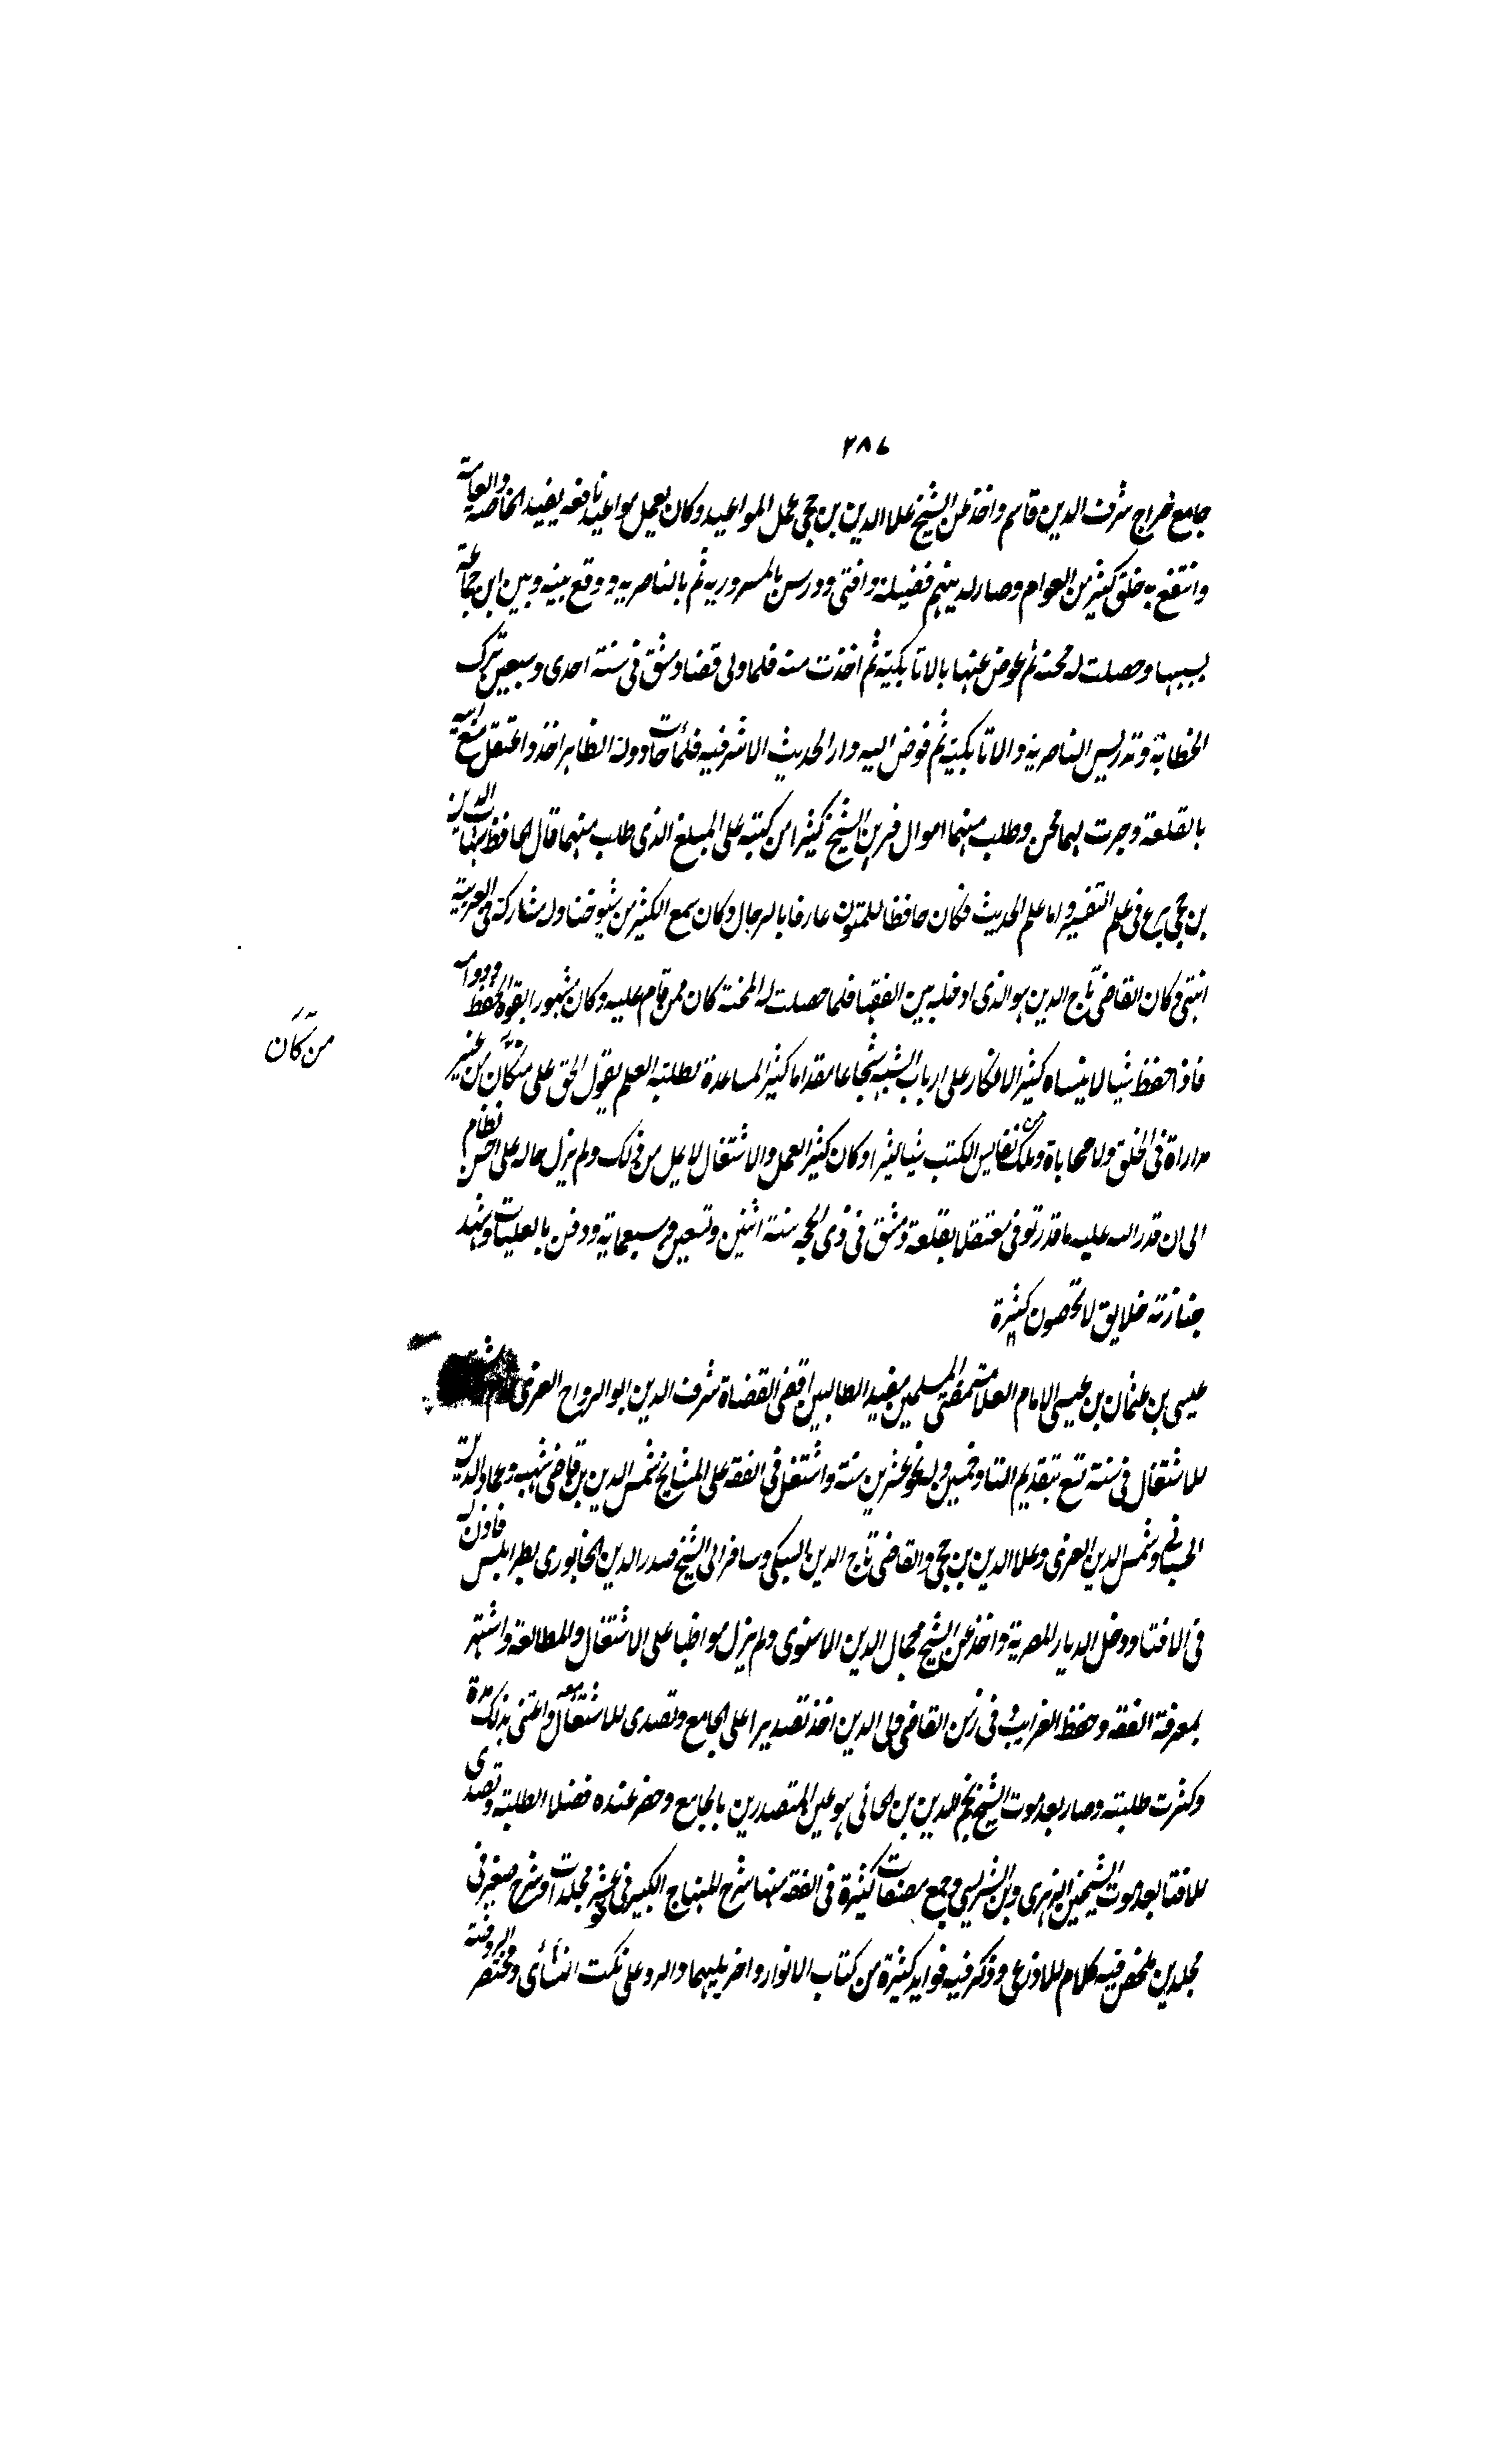 ٢٨٧
جامع خراج شرف الدين قاسم واخذ عن الشيخ علاالدين بن حجى عمل المواعيد وكان يعمل مواعيد نافعه يفيد الخاصه والعامة
وانتفع به خلق كثير من العوام وصار لديهم فضيلة وافتى ودرس بالمسروريه ثم بالناصريه ووقع بينه وبين ابن جماعة
بسببها وحصلت له محنة ثم عوض عنها بالاتابكية ثم اخذت منه فلما ولى قضا دمشق فى سنة احدى وسبعين ترك
الخطابة وتدريس الناصرية والاتابكية ثم فوض اليه دار الحديث الاشرفيه فلما جات دولة الظاهر اخذ واعتقل مع ابيه
بالقلعة وجرت لهما محن وطلب منهما اموال فرهن الشيخ كثيرا من كتبه على المبلغ الذى طلب منهما قال الحافظ شهاب الدين
بن حجى برع فى علم التفسير واما علم الحديث فكان حافظا للمتون عارفا بالرجال وكان سمع الكثير من شيوخنا وله مشاركة فى العربية
انتهى وكان القاضى تاج الدين هو الذى ادخله بين الفقها فلما حصلت له المحنة كان ممن قام عليه وكان مشهورا بقوة الحفظ ودوامه
فاذا حفظ شيا لا ينساه كثير الانكار على ارباب الشبه شجاعا مقداما كثير المساعدة لطلبة العلم يقول الحق على من كان من غير
من كان
مداراة فى الخلق ولا محاباة وملك من نفايس الكتب شيا كثيرا وكان كثير العمل والاشتغال لا يمل من ذلك ولم يزل حاله على احسن نظام
الى ان قدر الله عليه ما قدر توفى معتقلا بقلعة دمشق فى ذى الحجه سنة اثنين وتسعين وسبعماية ودفن بالقبيبات وشهد
جنازته خلايق لا يحصون كثرة
عيسى بن عثمان بن عيسى الامام العلامة مفتى المسلمين مفيد الطالبين اقضى القضاة شرف الدين ابو الرواح الغزى
للاشتغال فى سنة تسع بتقديم التا وخمسين وله نحو عشرين سنة واشتغل فى الفقه على المشايخ شمس الدين بن قاضى شهبه وعماد الدين
الحسبانى وشمس الدين الغزى وعلا الدين بن حجى والقاضى تاج الدين السبكى وسافر الى الشيخ صدر الدين الخابورى بطرابلس فاذن له
فى الافتا ودخل الديار المصرية واخذ عن الشيخ جمال الدين الاسنوى ولم يزل مواظبا على الاشتغال والمطالعة واشتهر
بمعرفة الفقه وحفظ الغرايب وفى زمن القاضى ولى الدين اخذ تصديرا على الجامع وتصدى للاشتغال واعتنى بذلك مدة
وكثرت طلبته وصار بعد موت الشيخ نجم الدين بن الجابى هو عين المتصدرين بالجامع وحضر عنده فضلا الطلبة وتصدى
للافتا بعد موت الشيخين الزهرى وابن الشريشى وجمع مصنفات كثيرة فى الفقه منها شرح المنهاج الكبير فى نحو عشر مجلدات وشرح صغير فى
مجلدين لخص فيه كلام الاذرعى وذكر فيه فوايد كثيرة من كتاب الانوار واخر بينهما والرد على نكت النشأى ومختصر الروضة